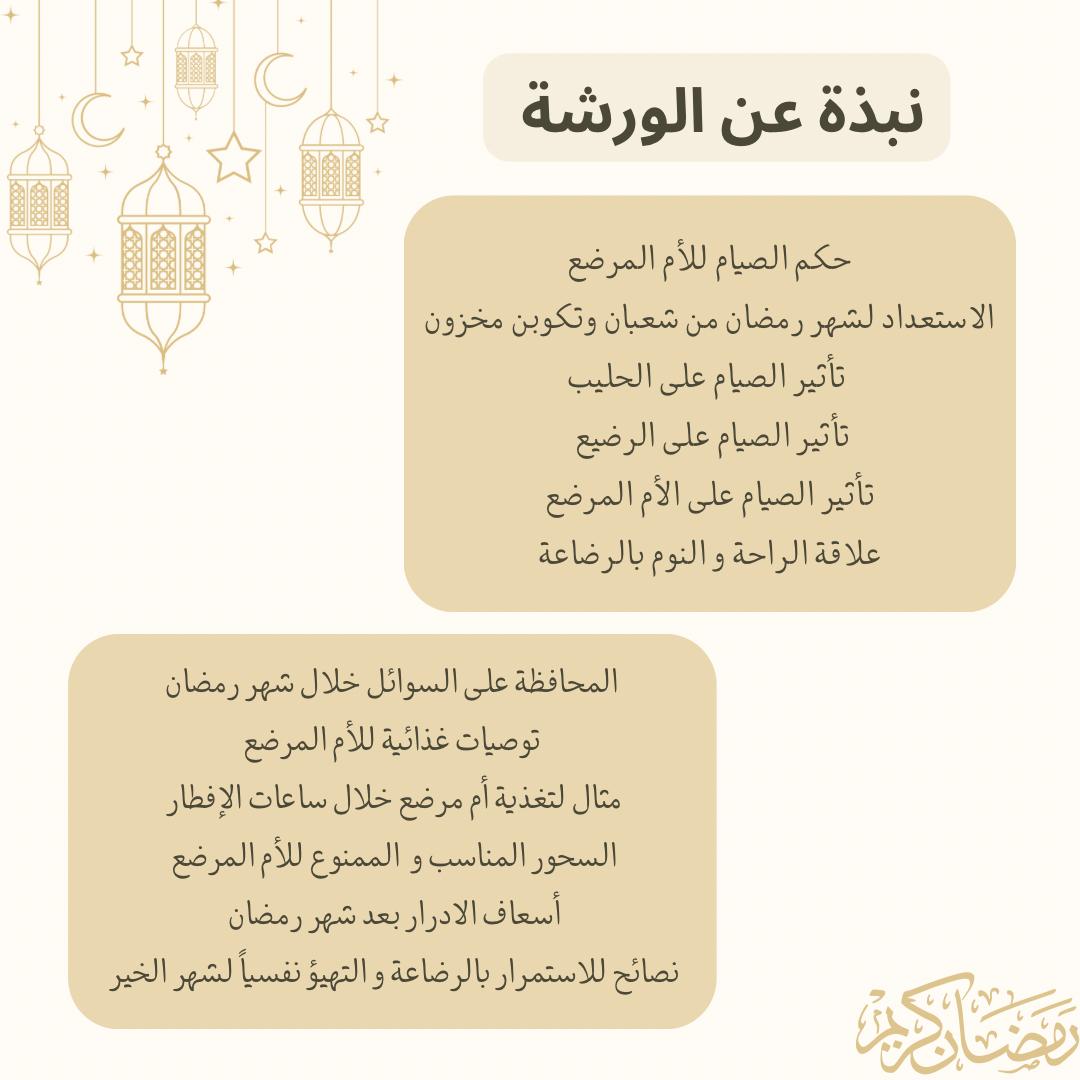 نبذة عن الورشة
حكم الصيام للأم المرضع
الاستعداد لشهر رمضان من شعبان وتكوبن مخزون
تأثير الصيام على الحليب
تأثير الصيام على الرضيع
تأثير الصيام على الأم المرضع
علاقة الراحة و النوم بالرضاعة
المحافظة على السوائل خلال شهر رمضان
توصيات غذائية للأم المرضع
مثال لتغذية أم مرضع خلال ساعات الإفطار
السحور المناسب و الممنوع للأم المرضع
أسعاف الادرار بعد شهر رمضان
نصائح للاستمرار بالرضاعة و التهيؤ نفسياً لشهر الخير
رمضان كريم